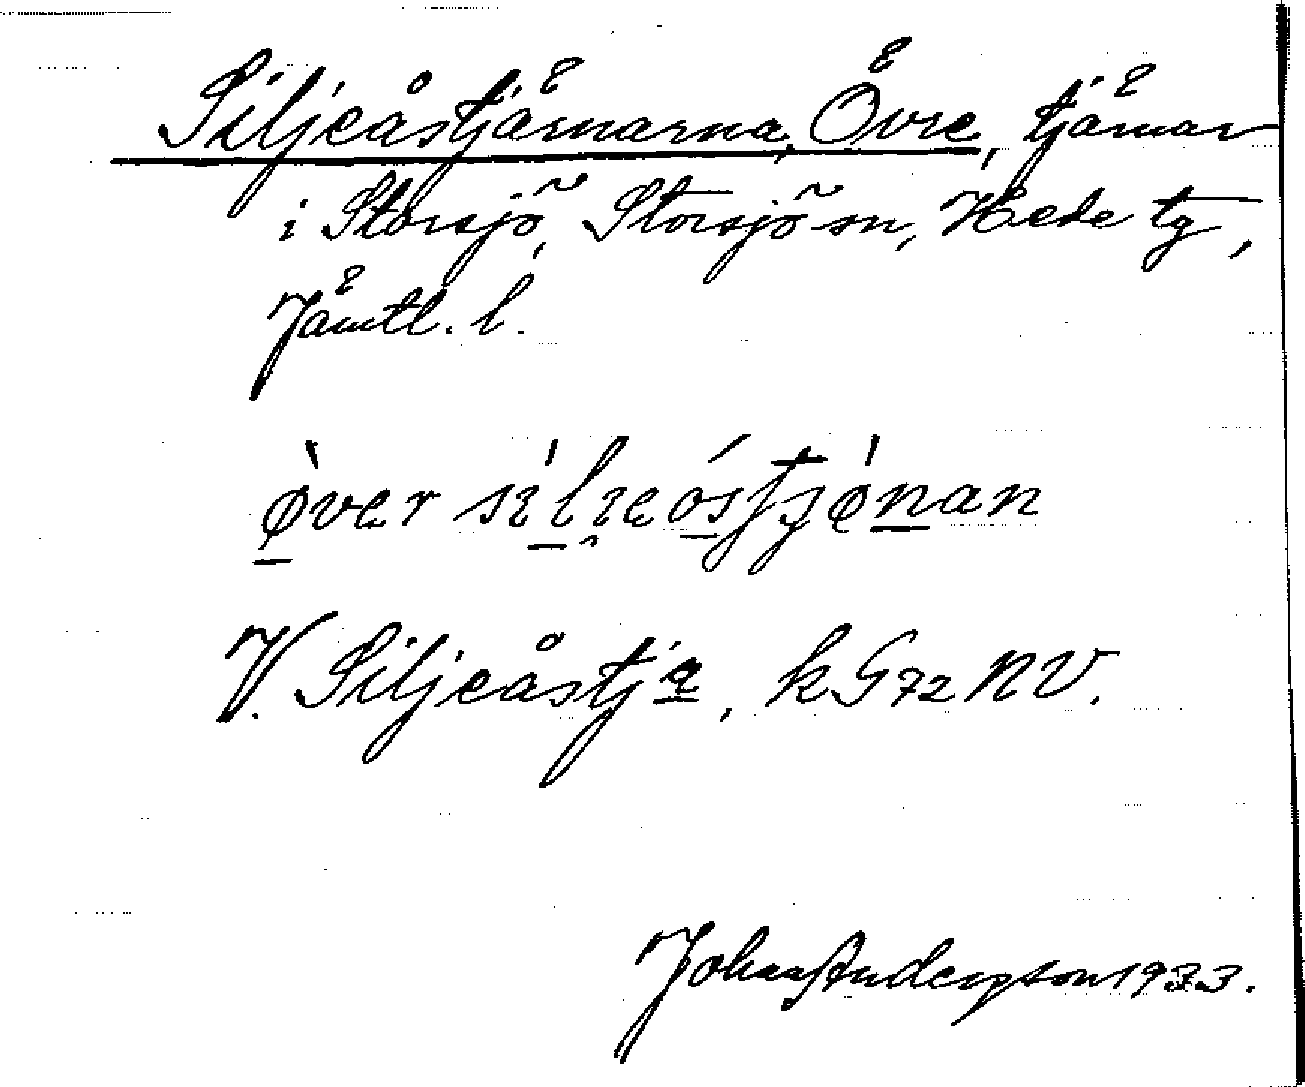 Siljeåstjärnarna, Övre, tjärnar
i Storsjö, Storsjö sn, Hede tg,
Jämtl. l.
øver siljeåstjønan
V. Siljeåstj:a, k G 72 NV.
Johan Anderson 1933.